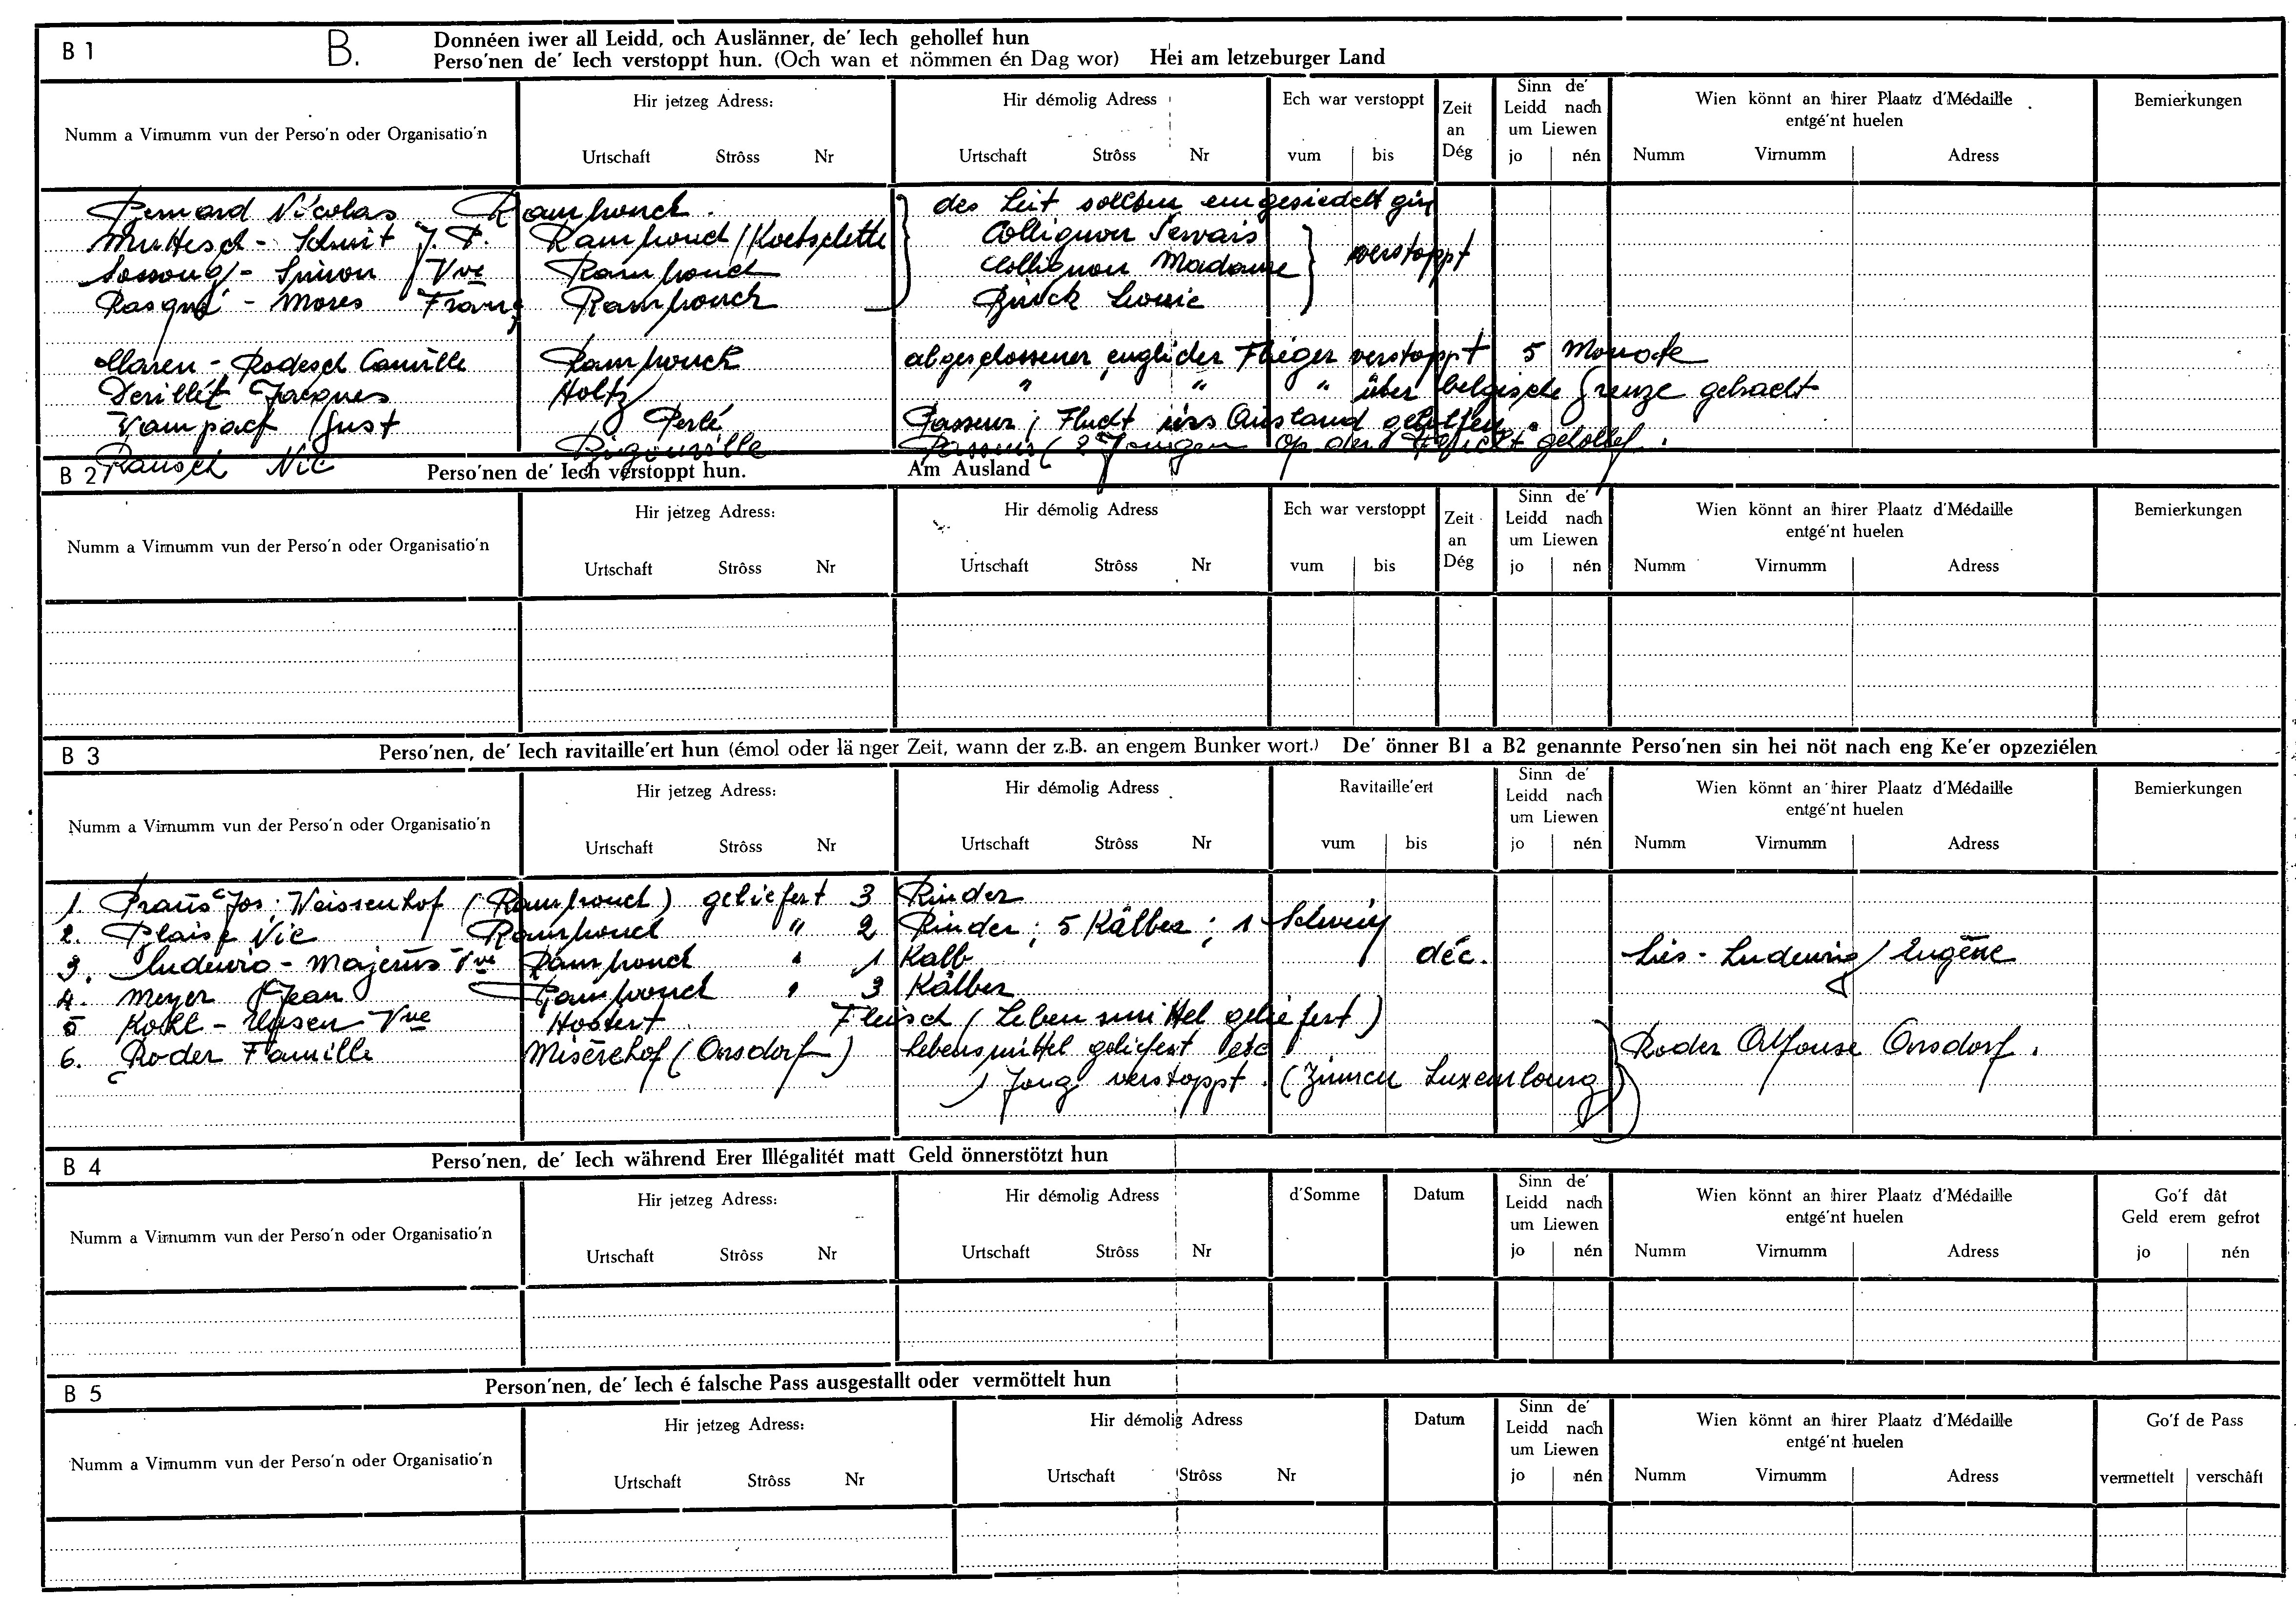 B 1 B. Donnéen iwer all Leidd, och Auslänner, de' Iech gehollef hun
Perso'nen de' Iech verstoppt hun. (Och wan et nömmen én Dag wor) Hei am letzeburger Land
Numm a Virnumm vun der Perso'n oder Organisatio'n
Hir jetzeg Adress:
Urtschaft Strôss Nr
Hir démolig Adress
Urtschaft Strôss Nr
Ech war verstoppt
vum bis
Zeit
an
Dég
Sinn de'
Leidd nach
um Liewen
jo nén
Wien könnt an hirer Plaatz d'Médaille
entgé'nt huelen
Numm Virnumm Adress
Bemierkungen
Nicolas Rambrouch. des Leit sollten emgesiedelt gin
J. P. Rambrouch / Koetschette Collignon Servais
Vve Rambrouch Collignon Madame verstoppt
Rasqué - Mores Franç Rambrouch
Rodesch Camille Rambrouch abgeschossener englischer Flieger verstoppt 5 Monate
Jacques Holtz " " " über belgische Grenze gebracht
Vampach Gust Perlé Passeur; Flucht ins Ausland geholfen.
Rausch Nic Bigonville Passeur (2 Jongen op der Flucht gehollef.
B 2 Perso'nen de' Iech verstoppt hun. Am Ausland
Numm a Virnumm vun der Perso'n oder Organisatio'n
Hir jetzeg Adress:
Urtschaft Strôss Nr
Hir démolig Adress
Urtschaft Strôss Nr
Ech war verstoppt
vum bis
Zeit
an
Dég
Sinn de'
Leidd nach
um Liewen
jo nén
Wien könnt an hirer Plaatz d'Médaille
entgé'nt huelen
Numm Virnumm Adress
Bemierkungen
B 3 Perso'nen, de' Iech ravitaille'ert hun (émol oder länger Zeit, wann der z.B. an engem Bunker wort.) De' önner B1 a B2 genannte Perso'nen sin hei nöt nach eng Ke'er opzeziélen
Numm a Virnumm vun der Perso'n oder Organisatio'n
Hir jetzeg Adress:
Urtschaft Strôss Nr
Hir démolig Adress
Urtschaft Strôss Nr
Ravitaille'ert
vum bis
Sinn de'
Leidd nach
um Liewen
jo nén
Wien könnt an hirer Plaatz d'Médaille
entgé'nt huelen
Numm Virnumm Adress
Bemierkungen
1. Jos. Weissenhof (Rambrouch) geliefert 3 Rinder
2. Nic Rambrouch " 2 Rinder; 5 Kälber; 1 Schwein
3. Ludewig - Majerus Vve Rambrouch " 1 Kalb déc. Liès - Ludewig Eugène
4. Meyer Jean Rambrouch " 3 Kälber
5 Vve Hostert Fleisch (Lebensmittel geliefert)
6. Roder Famille Misèrehof (Onsdorf) Lebensmittel geliefert etc Roder Alfonse Onsdorf.
1 Jong verstoppt. (Zimmer Luxembourg)
B 4 Perso'nen, de' Iech während Erer Illégalitét matt Geld önnerstötzt hun
Numm a Virnumm vun der Perso'n oder Organisatio'n
Hir jetzeg Adress:
Urtschaft Strôss Nr
Hir démolig Adress
Urtschaft Strôss Nr
d'Somme
Datum
Sinn de'
Leidd nach
um Liewen
jo nén
Wien könnt an hirer Plaatz d'Médaille
entgé'nt huelen
Numm Virnumm Adress
Go'f dât
Geld erem gefrot
jo nén
B 5 Person'nen, de' Iech é falsche Pass ausgestallt oder vermöttelt hun
Numm a Virnumm vun der Perso'n oder Organisatio'n
Hir jetzeg Adress:
Urtschaft Strôss Nr
Hir démolig Adress
Urtschaft Strôss Nr
Datum
Sinn de'
Leidd nach
um Liewen
jo nén
Wien könnt an hirer Plaatz d'Médaille
entgé'nt huelen
Numm Virnumm Adress
Go'f de Pass
vermettelt verschâft